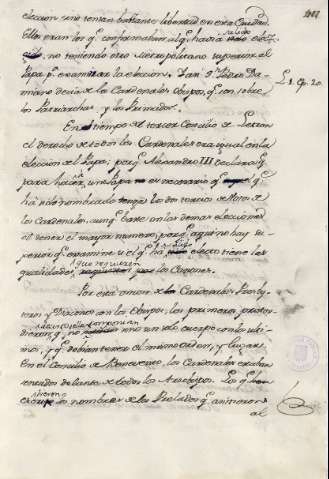 eleccion sino tenian bastante libertad en esta Ciudad.
Ellos eran los q̃ confirmaban al q̃ havia sido elec
no teniendo otro Metropolitano superior al
Papa p.ª examinar la eleccion. San Pedro Da-
miano decia de los Cardenales Obispos, q̃ son sobre
los Patriarchas y los Primados.
L. 1. Ep. 20.
En tiempo del tercer Concilio de Letran
el derecho de todos los Cardenales era igual en la
eleccion del Papa; porq̃ Alexandro III declaró q̃
para hacer un Papa es necesario q̃ el q̃
ha sido nombrado tenga los dos tercios de Votos de
los Cardenales, aunq̃ baste en las demas elecciones
obtener el mayor numero, porq̃ aqui no hay Su-
perior q̃ examine si el q̃ ha sido electo tiene las
qualidades q̃ requieren los Canones.
Por esta union de los Cardenales Presby-
teros y Diaconos con los Obispos, los primeros preten-
dieron q̃ no formaban sino un solo cuerpo con los ulti-
mos, y q̃ debian tener el mismo orden, y lugar.
En el Concilio de Benevento, los Cardenales estaban
sentados delante de todos los Arzobispos. Los q̃ han
escrito los nombres de los Prelados q̃ asistieron
al